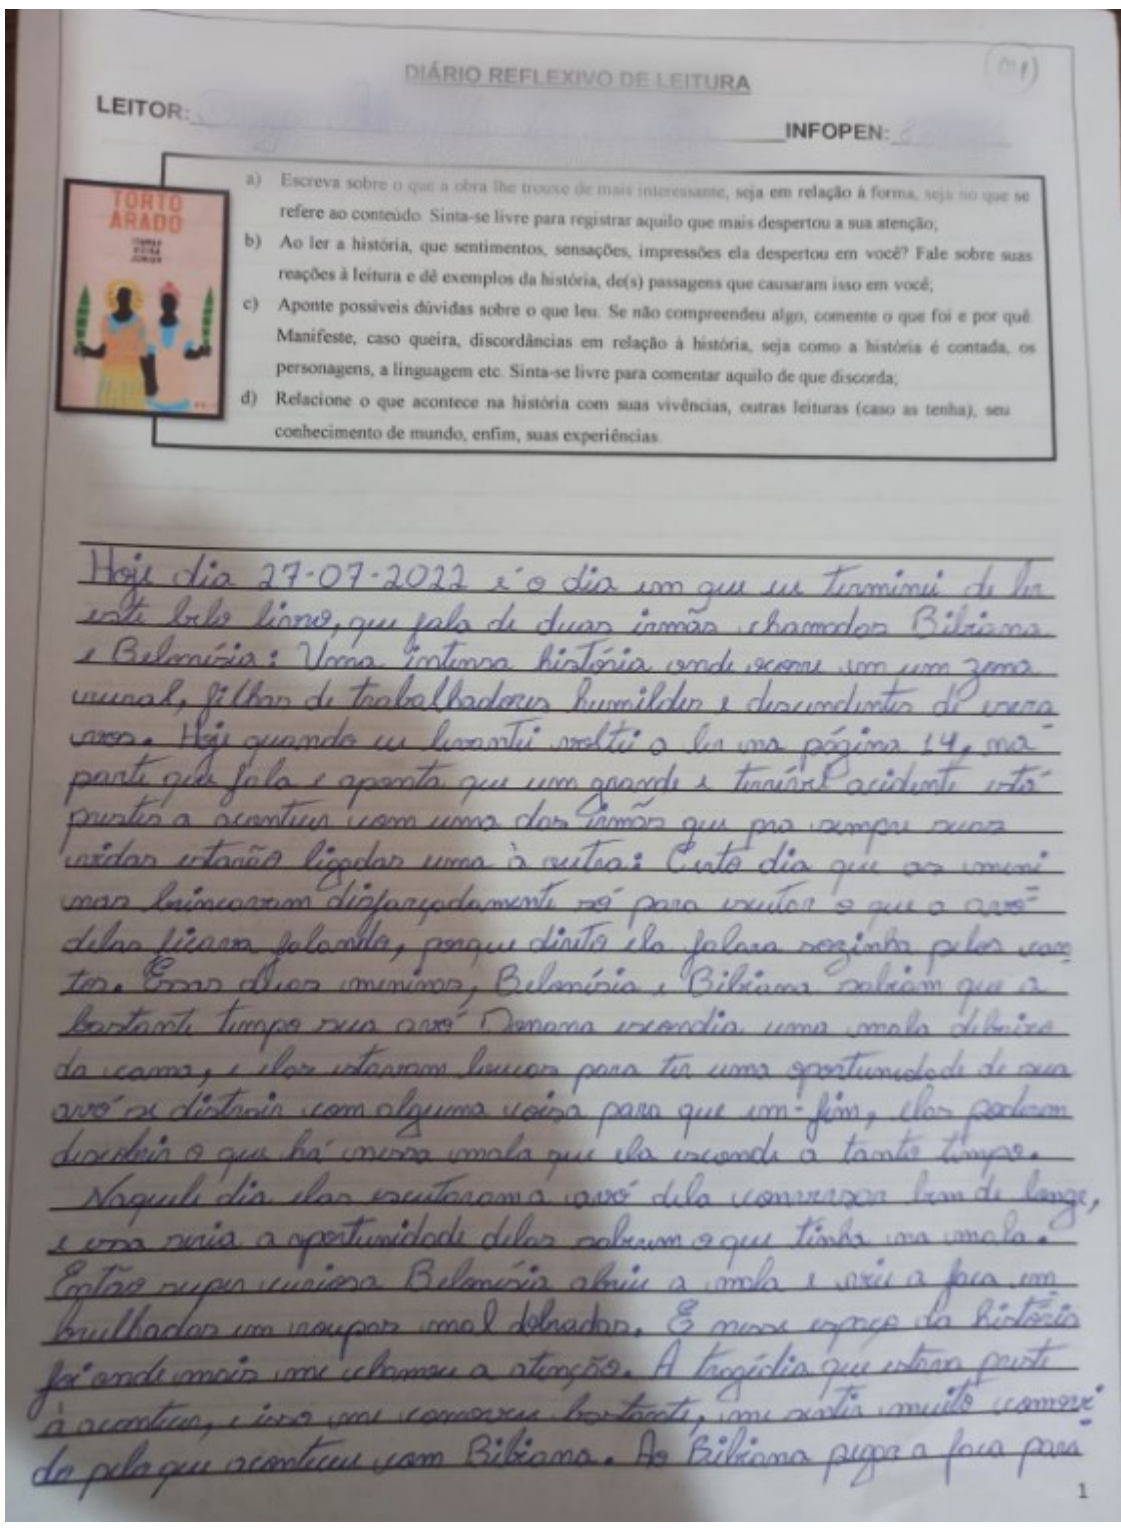 DIÁRIO REFLEXIVO DE LEITURA
LEITOR:
INFOPEN:
TORTO
ARADO
ITAMAR
VIEIRA
JUNIOR
a) Escreva sobre o que a obra lhe trouxe de mais interessante, seja em relação à forma, seja no que se
refere ao conteúdo. Sinta-se livre para registrar aquilo que mais despertou a sua atenção;
b) Ao ler a história, que sentimentos, sensações, impressões ela despertou em você? Fale sobre suas
reações à leitura e dê exemplos da história, de(s) passagens que causaram isso em você;
c) Aponte possíveis dúvidas sobre o que leu. Se não compreendeu algo, comente o que foi e por quê.
Manifeste, caso queira, discordâncias em relação à história, seja como a história é contada, os
personagens, a linguagem etc. Sinta-se livre para comentar aquilo de que discorda;
d) Relacione o que acontece na história com suas vivências, outras leituras (caso as tenha), seu
conhecimento de mundo, enfim, suas experiências.
Hoje dia 27-07-2022 é o dia em que eu terminei de ler
este belo livro, que fala de duas irmãs chamadas Bibiana
e Belonísia: Uma intensa história onde ocorre em um zona
rural, filhas de trabalhadores humildes e descendentes de escra
vos. Hoje quando eu levantei voltei a ler na página 14, na
parte que fala e aponta que um grande e terrível acidente está
prestes a acontecer com uma das irmãs que pra sempre suas
vidas estarão ligadas uma à outra: Certo dia que as meni
nas brincavam disfarçadamente só para escutar o que a avó
delas ficava falando, porque direto ela falava sozinha pelos can
tos. Essas duas meninas, Belonísia e Bibiana sabiam que a
bastante tempo sua avó Donana escondia uma mala debaixo
da cama, e elas estavam loucas para ter uma oportunidade de sua
avó se distrair com alguma coisa para que em-fim, elas poderem
descobrir o que há nessa mala que ela esconde a tanto tempo.
Naquele dia elas escutaram a avó dela conversar bem de longe,
e essa seria a oportunidade delas saberem o que tinha na mala.
Então super curiosa Belonísia abriu a mala e viu a faca em
brulhadas em roupas mal dobradas. E nesse espaço da história
foi onde mais me chamou a atenção. A tragédia que estava preste
à acontecer, e isso me comoveu bastante, me sentir muito comovi
do pelo que aconteceu com Bibiana. Ao Bibiana pegar a faca para
1